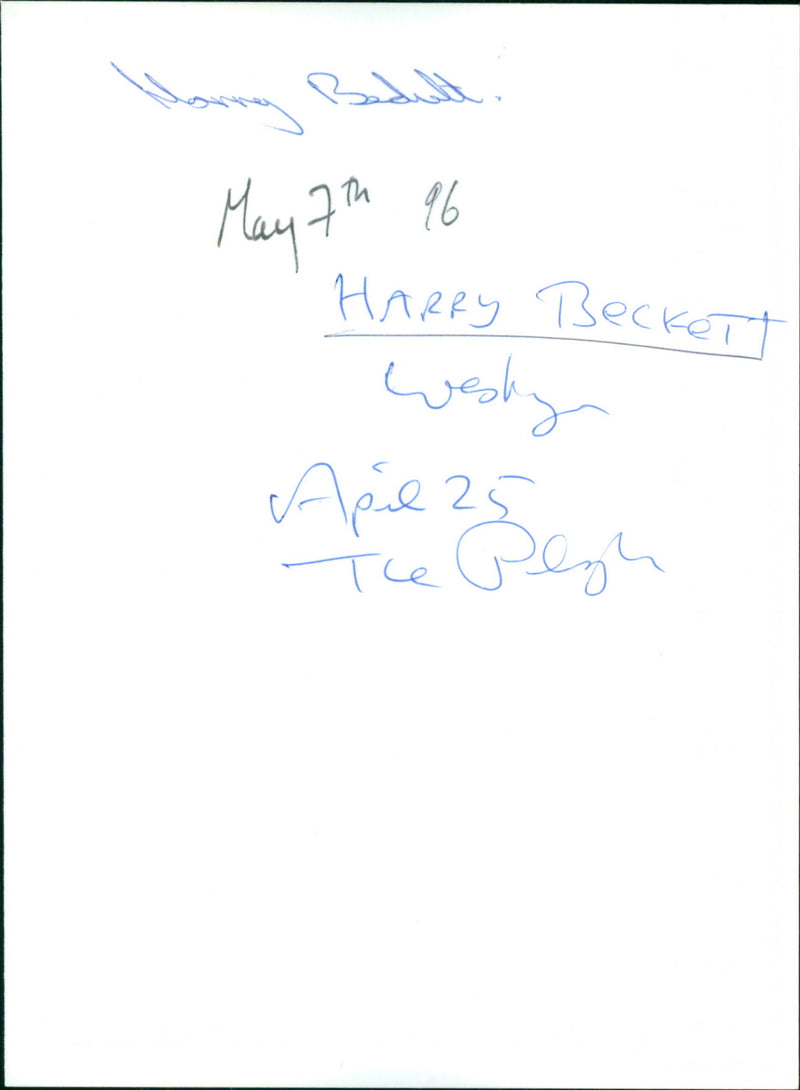 Harry Beckett.
May 7th 96
HARRY BECKETT
April 25
The Plough